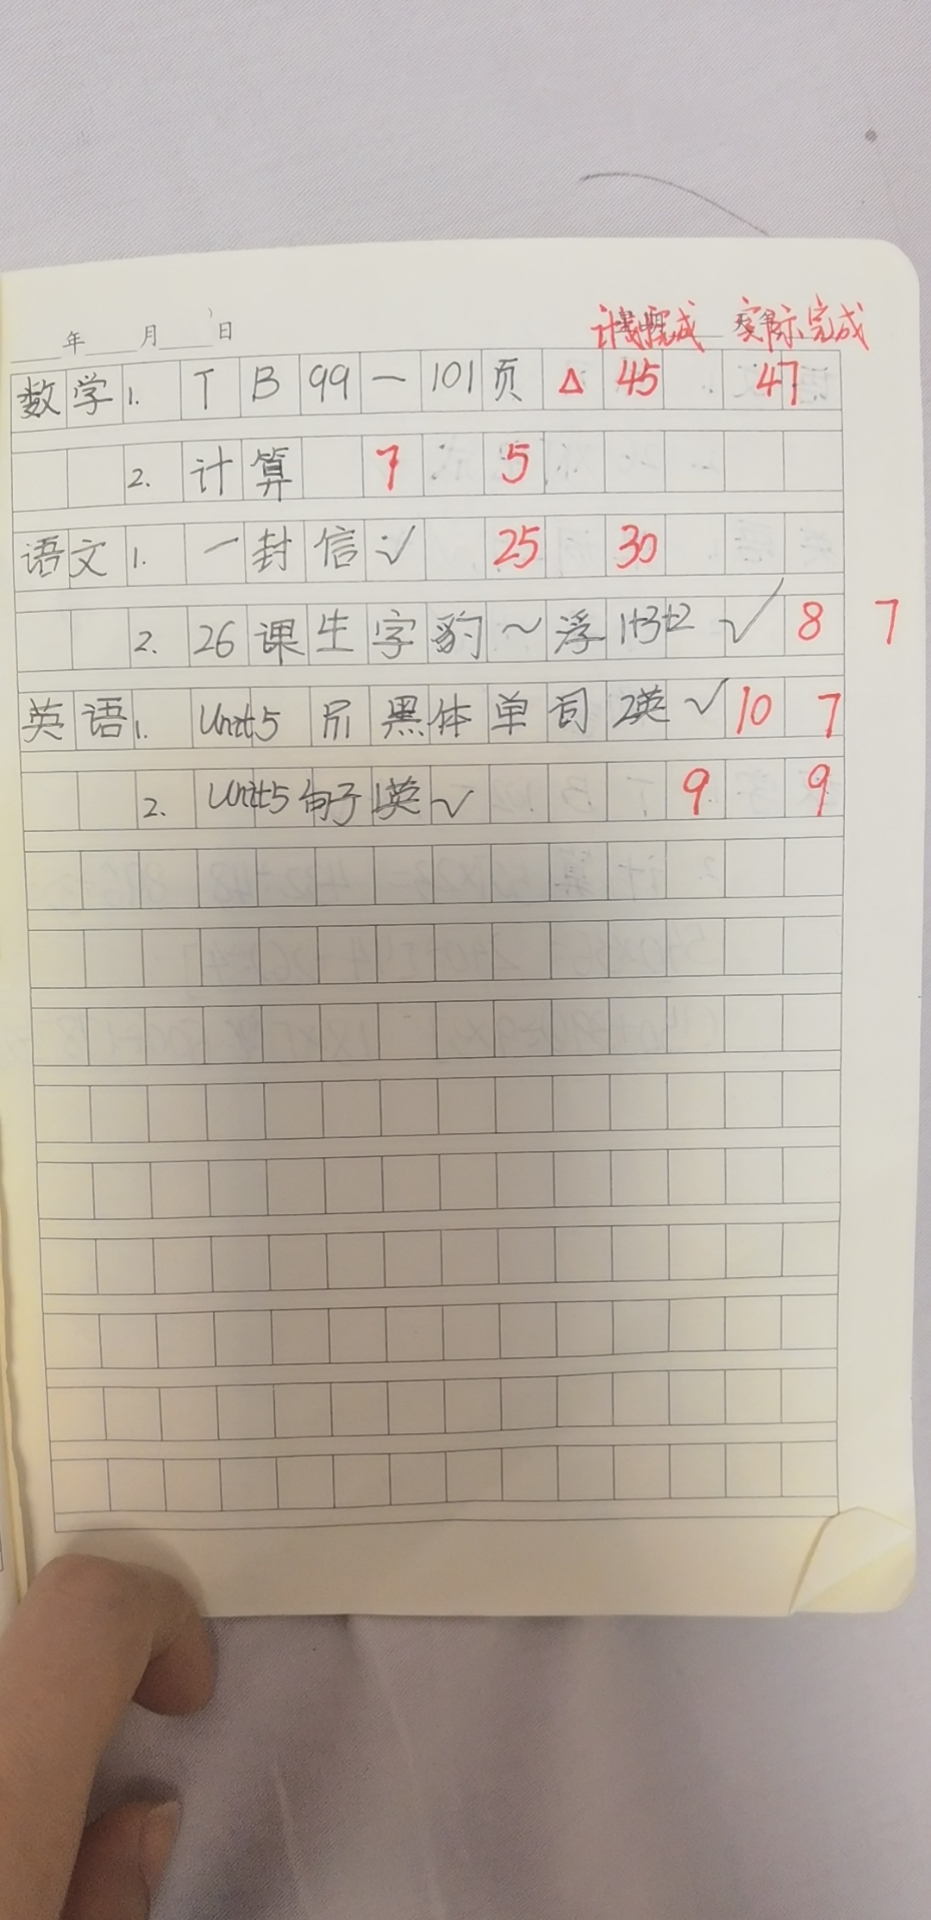 计划完成 实际完成
年 月 日
数学1. TB99—101页 △ 45 47
2. 计算 7 5
语文1. 一封信√ 25 30
2. 26课生字豹~浮1+3+2 √ 8 7
英语1. Unit5 黑体单词2英 √ 10 7
2. Unit5句子1英√ 9 9